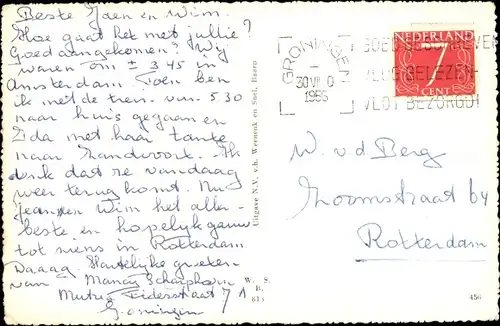 Beste Jaen en Wim.
Hoe gaat het met jullie?
Goed aangekomen? Wij
waren om ± 3.45 in
Amsterdam Toen ben
ik met de trein van 5 30
naar huis gegaan en
Ida met haar tante
naar Zandvoort. Ik
denk dat ze vandaag
weer terug komt. Nu
Jeanen Wim het aller-
beste en hopelijk gauw
tot ziens in Rotterdam
Daaag Hartelijke groeten
van Mancy
71
Groningen
Uitgave N.V. v.h. Weenenk en Snel, Baarn
W. S.
B.
813
GRONINGEN
30 VII 0
1956
GOED GESCHREVEN
VLUG GELEZEN-
VLOT BEZORGD!
NEDERLAND
7
CENT
W. v.d Berg
Zoomstraat 64
Rotterdam
456